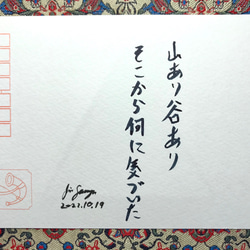 山あり谷あり
そこから何に気づいた
2021.10.19